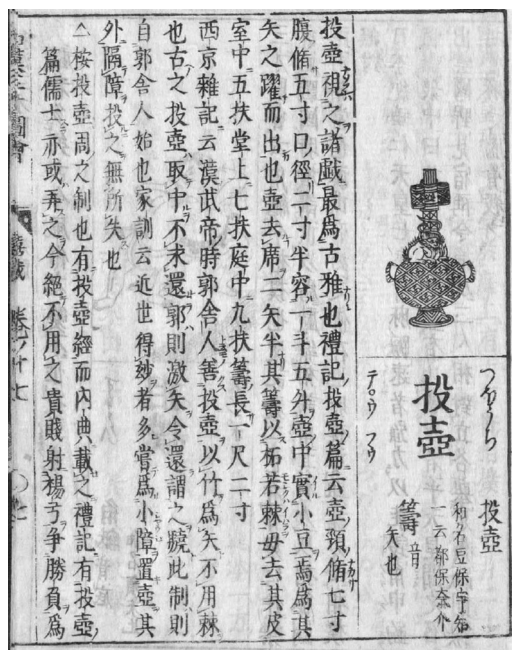 つぼうち
投壺
和名豆保宇知
一云都保奈介
投壺
籌音
矢也
テ゜ウ フウ
投壺視之諸戯最爲古雅也禮記投壺篇云壺頸脩七寸
腹脩五寸口徑二寸半容一斗五升壺中實小豆焉爲其
矢之躍而出也壺去席二矢半其籌以柘若棘毋去其皮
室中五扶堂上七扶庭中九扶籌長一尺二寸
西京雜記云漢武帝時郭舍人善投壺以竹爲矢不用棘
也古之投壺取中不求還郭則激矢令還謂之驍此制則
自郭舍人始也家訓云近世得妙者多嘗爲小障置壺其
外隔障投之無所失也
△按投壺周之制也有投壺經而內典載之禮記有投壺
篇儒士亦或弄之今絕不用之貴賤射楊弓爭勝負爲